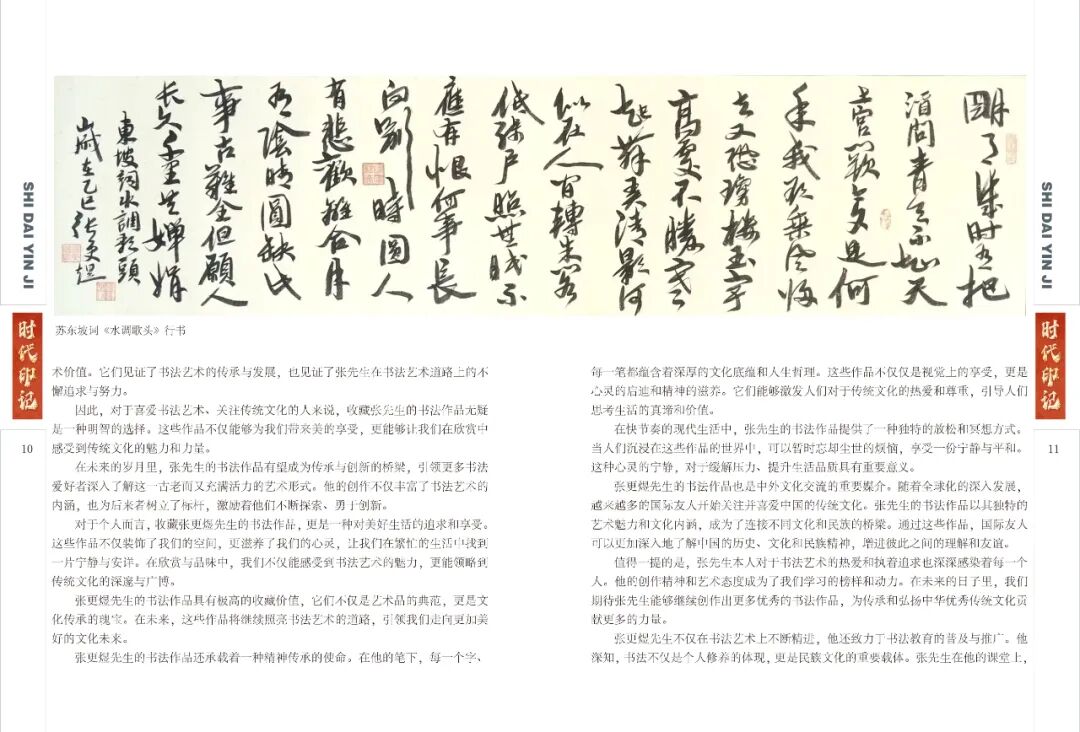 明月幾时有把
酒問青天不知天
上宫闕今夕是何
年我欲乘风歸
去又恐瓊樓玉宇
高處不勝寒
起舞弄清影何
似在人间轉朱阁
低绮户照無眠不
應有恨何事長
向别時圓人
有悲歡離合月
有陰晴圓缺此
事古難全但願人
长久千里共嬋娟
東坡詞水調歌頭
歲在乙巳张更煜
苏东坡词《水调歌头》行书
SHI DAI YIN JI
时代印记
10
术价值。它们见证了书法艺术的传承与发展，也见证了张先生在书法艺术道路上的不
懈追求与努力。
因此，对于喜爱书法艺术、关注传统文化的人来说，收藏张先生的书法作品无疑
是一种明智的选择。这些作品不仅能够为我们带来美的享受，更能够让我们在欣赏中
感受到传统文化的魅力和力量。
在未来的岁月里，张先生的书法作品有望成为传承与创新的桥梁，引领更多书法
爱好者深入了解这一古老而又充满活力的艺术形式。他的创作不仅丰富了书法艺术的
内涵，也为后来者树立了标杆，激励着他们不断探索、勇于创新。
对于个人而言，收藏张更煜先生的书法作品，更是一种对美好生活的追求和享受。
这些作品不仅装饰了我们的空间，更滋养了我们的心灵，让我们在繁忙的生活中找到
一片宁静与安详。在欣赏与品味中，我们不仅能感受到书法艺术的魅力，更能领略到
传统文化的深邃与广博。
张更煜先生的书法作品具有极高的收藏价值，它们不仅是艺术品的典范，更是文
化传承的瑰宝。在未来，这些作品将继续照亮书法艺术的道路，引领我们走向更加美
好的文化未来。
张更煜先生的书法作品还承载着一种精神传承的使命。在他的笔下，每一个字、
每一笔都蕴含着深厚的文化底蕴和人生哲理。这些作品不仅仅是视觉上的享受，更是
心灵的启迪和精神的滋养。它们能够激发人们对于传统文化的热爱和尊重，引导人们
思考生活的真谛和价值。
在快节奏的现代生活中，张先生的书法作品提供了一种独特的放松和冥想方式。
当人们沉浸在这些作品的世界中，可以暂时忘却尘世的烦恼，享受一份宁静与平和。
这种心灵的宁静，对于缓解压力、提升生活品质具有重要意义。
张更煜先生的书法作品也是中外文化交流的重要媒介。随着全球化的深入发展，
越来越多的国际友人开始关注并喜爱中国的传统文化。张先生的书法作品以其独特的
艺术魅力和文化内涵，成为了连接不同文化和民族的桥梁。通过这些作品，国际友人
可以更加深入地了解中国的历史、文化和民族精神，增进彼此之间的理解和友谊。
值得一提的是，张先生本人对于书法艺术的热爱和执着追求也深深感染着每一个
人。他的创作精神和艺术态度成为了我们学习的榜样和动力。在未来的日子里，我们
期待张先生能够继续创作出更多优秀的书法作品，为传承和弘扬中华优秀传统文化贡
献更多的力量。
张更煜先生不仅在书法艺术上不断精进，他还致力于书法教育的普及与推广。他
深知，书法不仅是个人修养的体现，更是民族文化的重要载体。张先生在他的课堂上，
SHI DAI YIN JI
时代印记
11